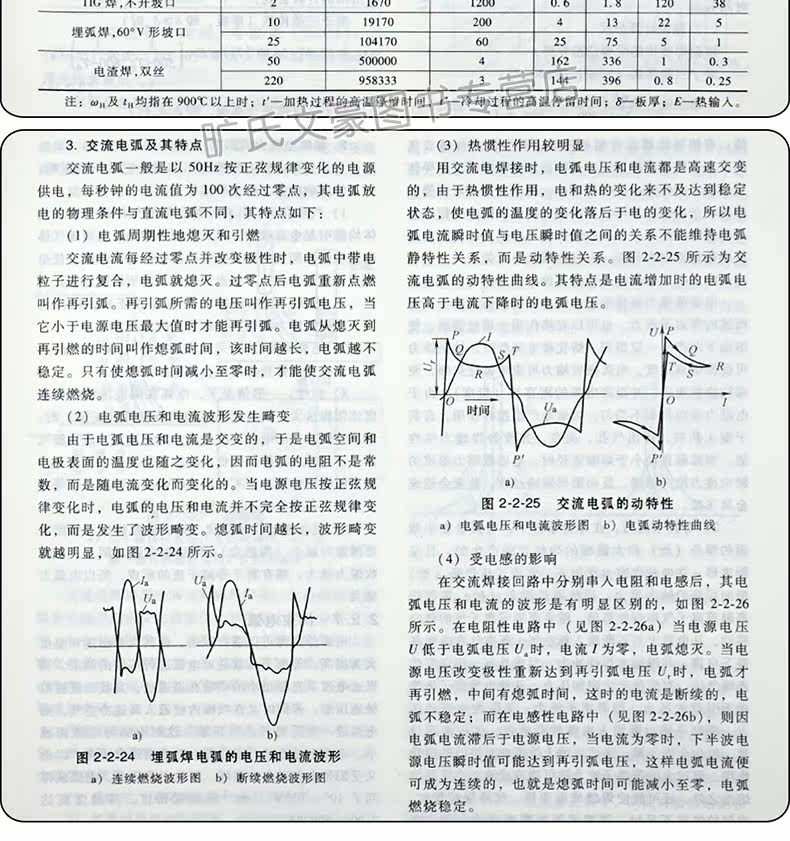 TIG 焊,不开坡口 2 1670 1200 0.6 1.8 120 38
埋弧焊,60°V 形坡口
10 19170 200 4 13 22 5
25 104170 60 25 75 5 1
电渣焊,双丝
50 500000 4 162 336 1 0.3
220 958333 3 144 396 0.8 0.25
注:ωH及 tH均指在 900℃以上时;t′—加热过程的高温停留时间,t″—冷却过程的高温停留时间;δ—板厚;E—热输入。
旷氏文豪图书专营店
3. 交流电弧及其特点
交流电弧一般是以 50Hz 按正弦规律变化的电源
供电,每秒钟的电流值为 100 次经过零点,其电弧放
电的物理条件与直流电弧不同,其特点如下:
(1) 电弧周期性地熄灭和引燃
交流电流每经过零点并改变极性时,电弧中带电
粒子进行复合,电弧就熄灭。过零点后电弧重新点燃
叫作再引弧。再引弧所需的电压叫作再引弧电压,当
它小于电源电压最大值时才能再引弧。电弧从熄灭到
再引燃的时间叫作熄弧时间,该时间越长,电弧越不
稳定。只有使熄弧时间减小至零时,才能使交流电弧
连续燃烧。
(2) 电弧电压和电流波形发生畸变
由于电弧电压和电流是交变的,于是电弧空间和
电极表面的温度也随之变化,因而电弧的电阻不是常
数,而是随电流变化而变化的。当电源电压按正弦规
律变化时,电弧的电压和电流并不完全按正弦规律变
化,而是发生了波形畸变。熄弧时间越长,波形畸变
就越明显,如图 2-2-24 所示。
Ia
Ua
Ua
Ia
a) b)
图 2-2-24 埋弧焊电弧的电压和电流波形
a) 连续燃烧波形图 b) 断续燃烧波形图
(3) 热惯性作用较明显
用交流电焊接时,电弧电压和电流都是高速交变
的,由于热惯性作用,电和热的变化来不及达到稳定
状态,使电弧的温度的变化落后于电的变化,所以电
弧电流瞬时值与电压瞬时值之间的关系不能维持电弧
静特性关系,而是动特性关系。图 2-2-25 所示为交
流电弧的动特性曲线。其特点是电流增加时的电弧电
压高于电流下降时的电弧电压。
P I U P
Q S T Q
Ur R T S R
O 时间 Ua O I
P′ P′
a) b)
图 2-2-25 交流电弧的动特性
a) 电弧电压和电流波形图 b) 电弧动特性曲线
(4) 受电感的影响
在交流焊接回路中分别串入电阻和电感后,其电
弧电压和电流的波形是有明显区别的,如图 2-2-26
所示。在电阻性电路中(见图 2-2-26a)当电源电压
U 低于电弧电压 Ua时,电流 I 为零,电弧熄灭。当电
源电压改变极性重新达到再引弧电压 Ur时,电弧才
再引燃,中间有熄弧时间,这时的电流是断续的,电
弧不稳定;而在电感性电路中(见图 2-2-26b),则因
电弧电流滞后于电源电压,当电流为零时,下半波电
源电压瞬时值可能达到再引弧电压,这样电弧电流便
可成为连续的,也就是熄弧时间可能减小至零,电弧
燃烧稳定。